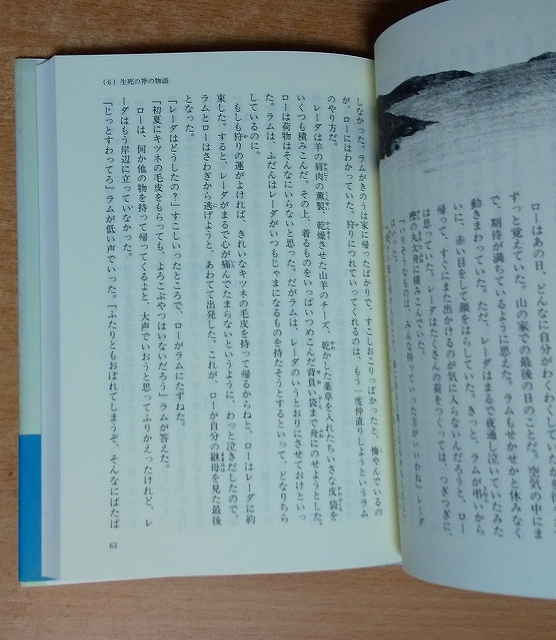 ローはあの日、どんなに自分がわくわくしてい
ずっと覚えていた。山の家での最後の日のことだ。空気の中にま
で、期待が満ちているように思えた。ラムもせかせかと休みなく
動きまわっていた。ただ、レーダはまるで夜通し泣いていたみた
いに、赤い目をして顔をはらしていた。きっと、ラムが弔いから
帰って、すぐにまた出かけるのが気に入らないんだろうと、ロー
は思っていた。レーダはたくさんの荷をつくっては、つぎつぎに、
の丸木舟に積みこんだ。
「いりそうなものは、みんな持っていったほうがいいわね」レーダ
しなかった。ラムがきのうは家に帰ったばかりで、すこしおこりっぽかったと、悔やんでいるの
が、ローにはわかっていた。狩りにつれていってくれるのは、もう一度仲直りしようというラム
のやり方だ。
レーダは羊の肩肉の燻製、乾燥させた山羊のチーズ、乾かした薬草を入れたちいさな皮袋を
いくつも積みこんだ。その上、着るものをいっぱいつめこんだ背負い袋まで舟にのせようとした。
ローは荷物はそんなにいらないと思った。だがラムは、レーダのいうとおりにさせておけといっ
た。ラムは、ふだんはレーダがいつもじゃまになるものを持たそうとするといって、どなりちら
しているのに。
もしも狩りの運がよければ、きれいなキツネの毛皮を持って帰るからねと、ローはレーダに約
束した。すると、レーダがまるで心が痛んでたまらないというように、わっと泣きだしたので、
ラムとローはさわぎから逃げようと、あわてて出発した。これが、ローが自分の継母を見た最後
となった。
「レーダはどうしたの？」すこしいったところで、ローがラムにたずねた。
「初夏にキツネの毛皮をもらっても、よろこぶやつはいないだろう」ラムが答えた。
ローは、何か他の物を持って帰ってくるよと、大声でいおうと思ってふりかえったけれど、レ
ーダはもう岸辺に立っていなかった。
「じっとすわってろ」ラムが低い声でいった。「ふたりともおぼれてしまうぞ、そんなにばたば
(6) 生死の斧の物語
63